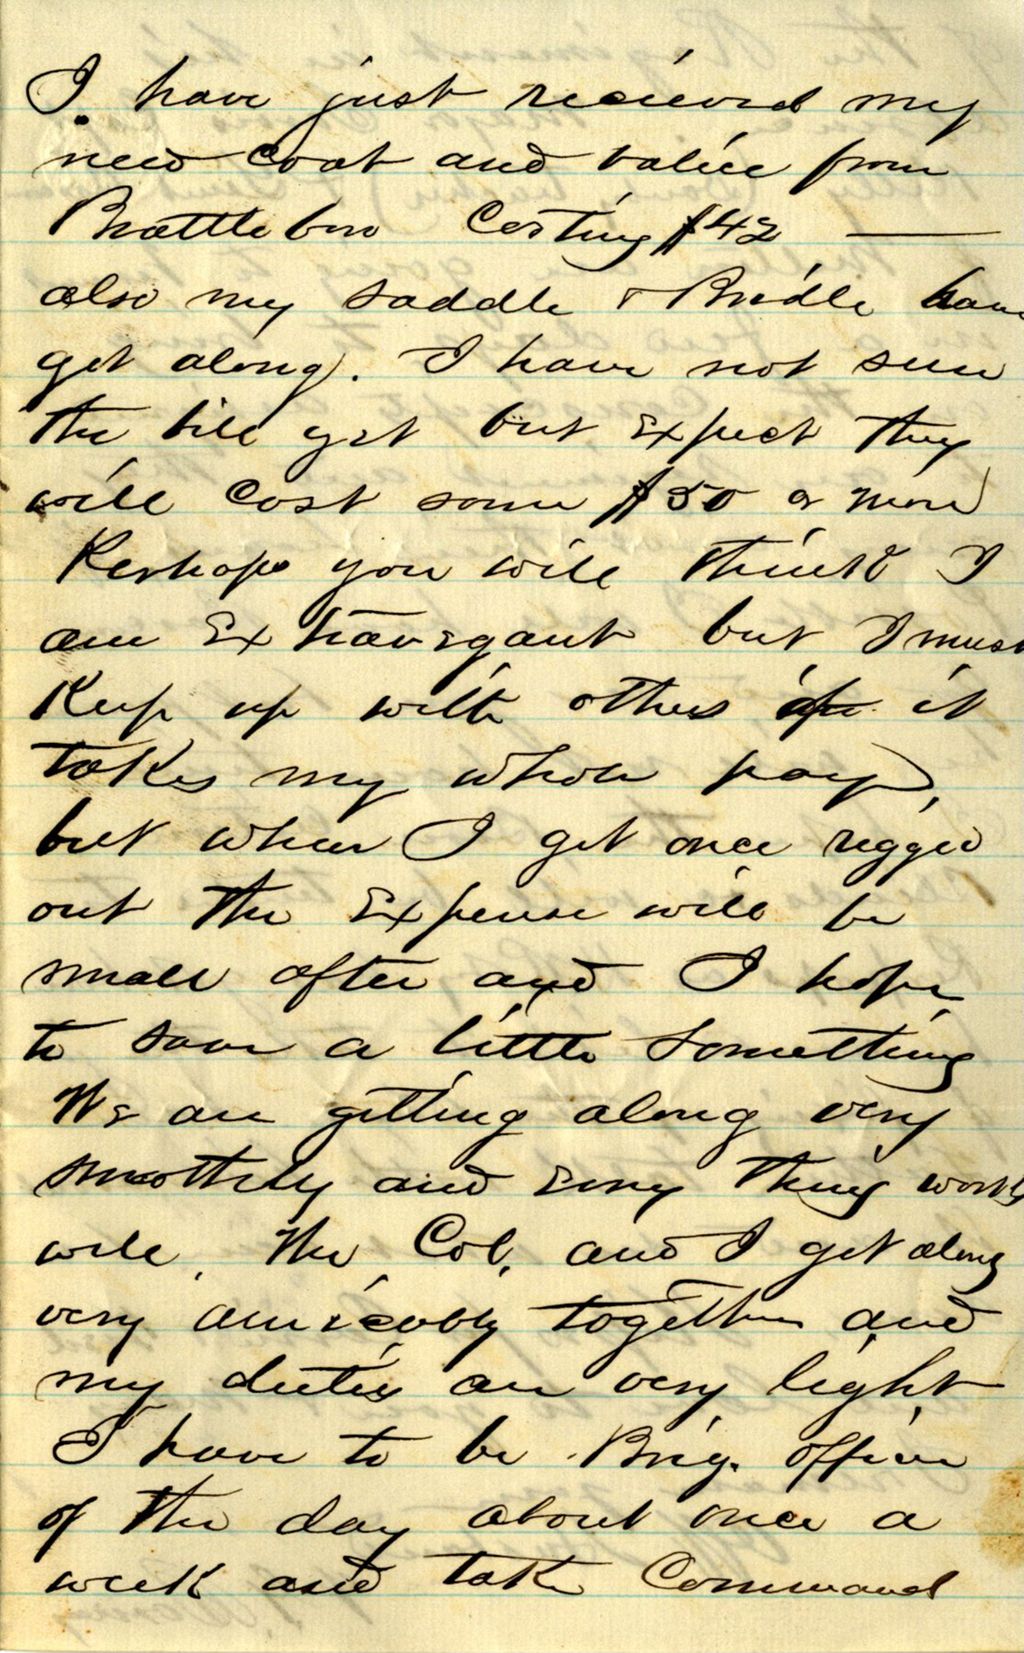 I have just recieved my
new coat and valise from
Brattleboro Costing $42 —
also my saddle & Bridle have
got along. I have not seen
the bill yet but Expect they
will Cost some $50 or more
Perhaps you will think I
am Extravegant but I must
Keep up with others if it
takes my whole pay,
but when I get once rigged
out the Expense will be
small after and I hope
to save a little something
We are getting along very
smoothely and every thing works
well. The Col. and I get along
very amicably together and
my duties are very light
I have to be Brig. officer
of the day about once a
week and take Command